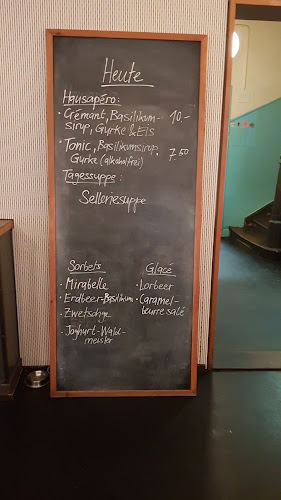 Heute
Hausapéro:
· Crémant, Basilikum-
sirup, Gurke & Eis 10.-
· Tonic, Basilikumsirup,
Gurke (alkoholfrei) 7.50
Tagessuppe:
Selleriesuppe
Sorbets
· Mirabelle
· Erdbeer-Basilikum
· Zwetschge
· Joghurt-Wald-
meister
Glacé
· Lorbeer
· Caramel-
beurre salé